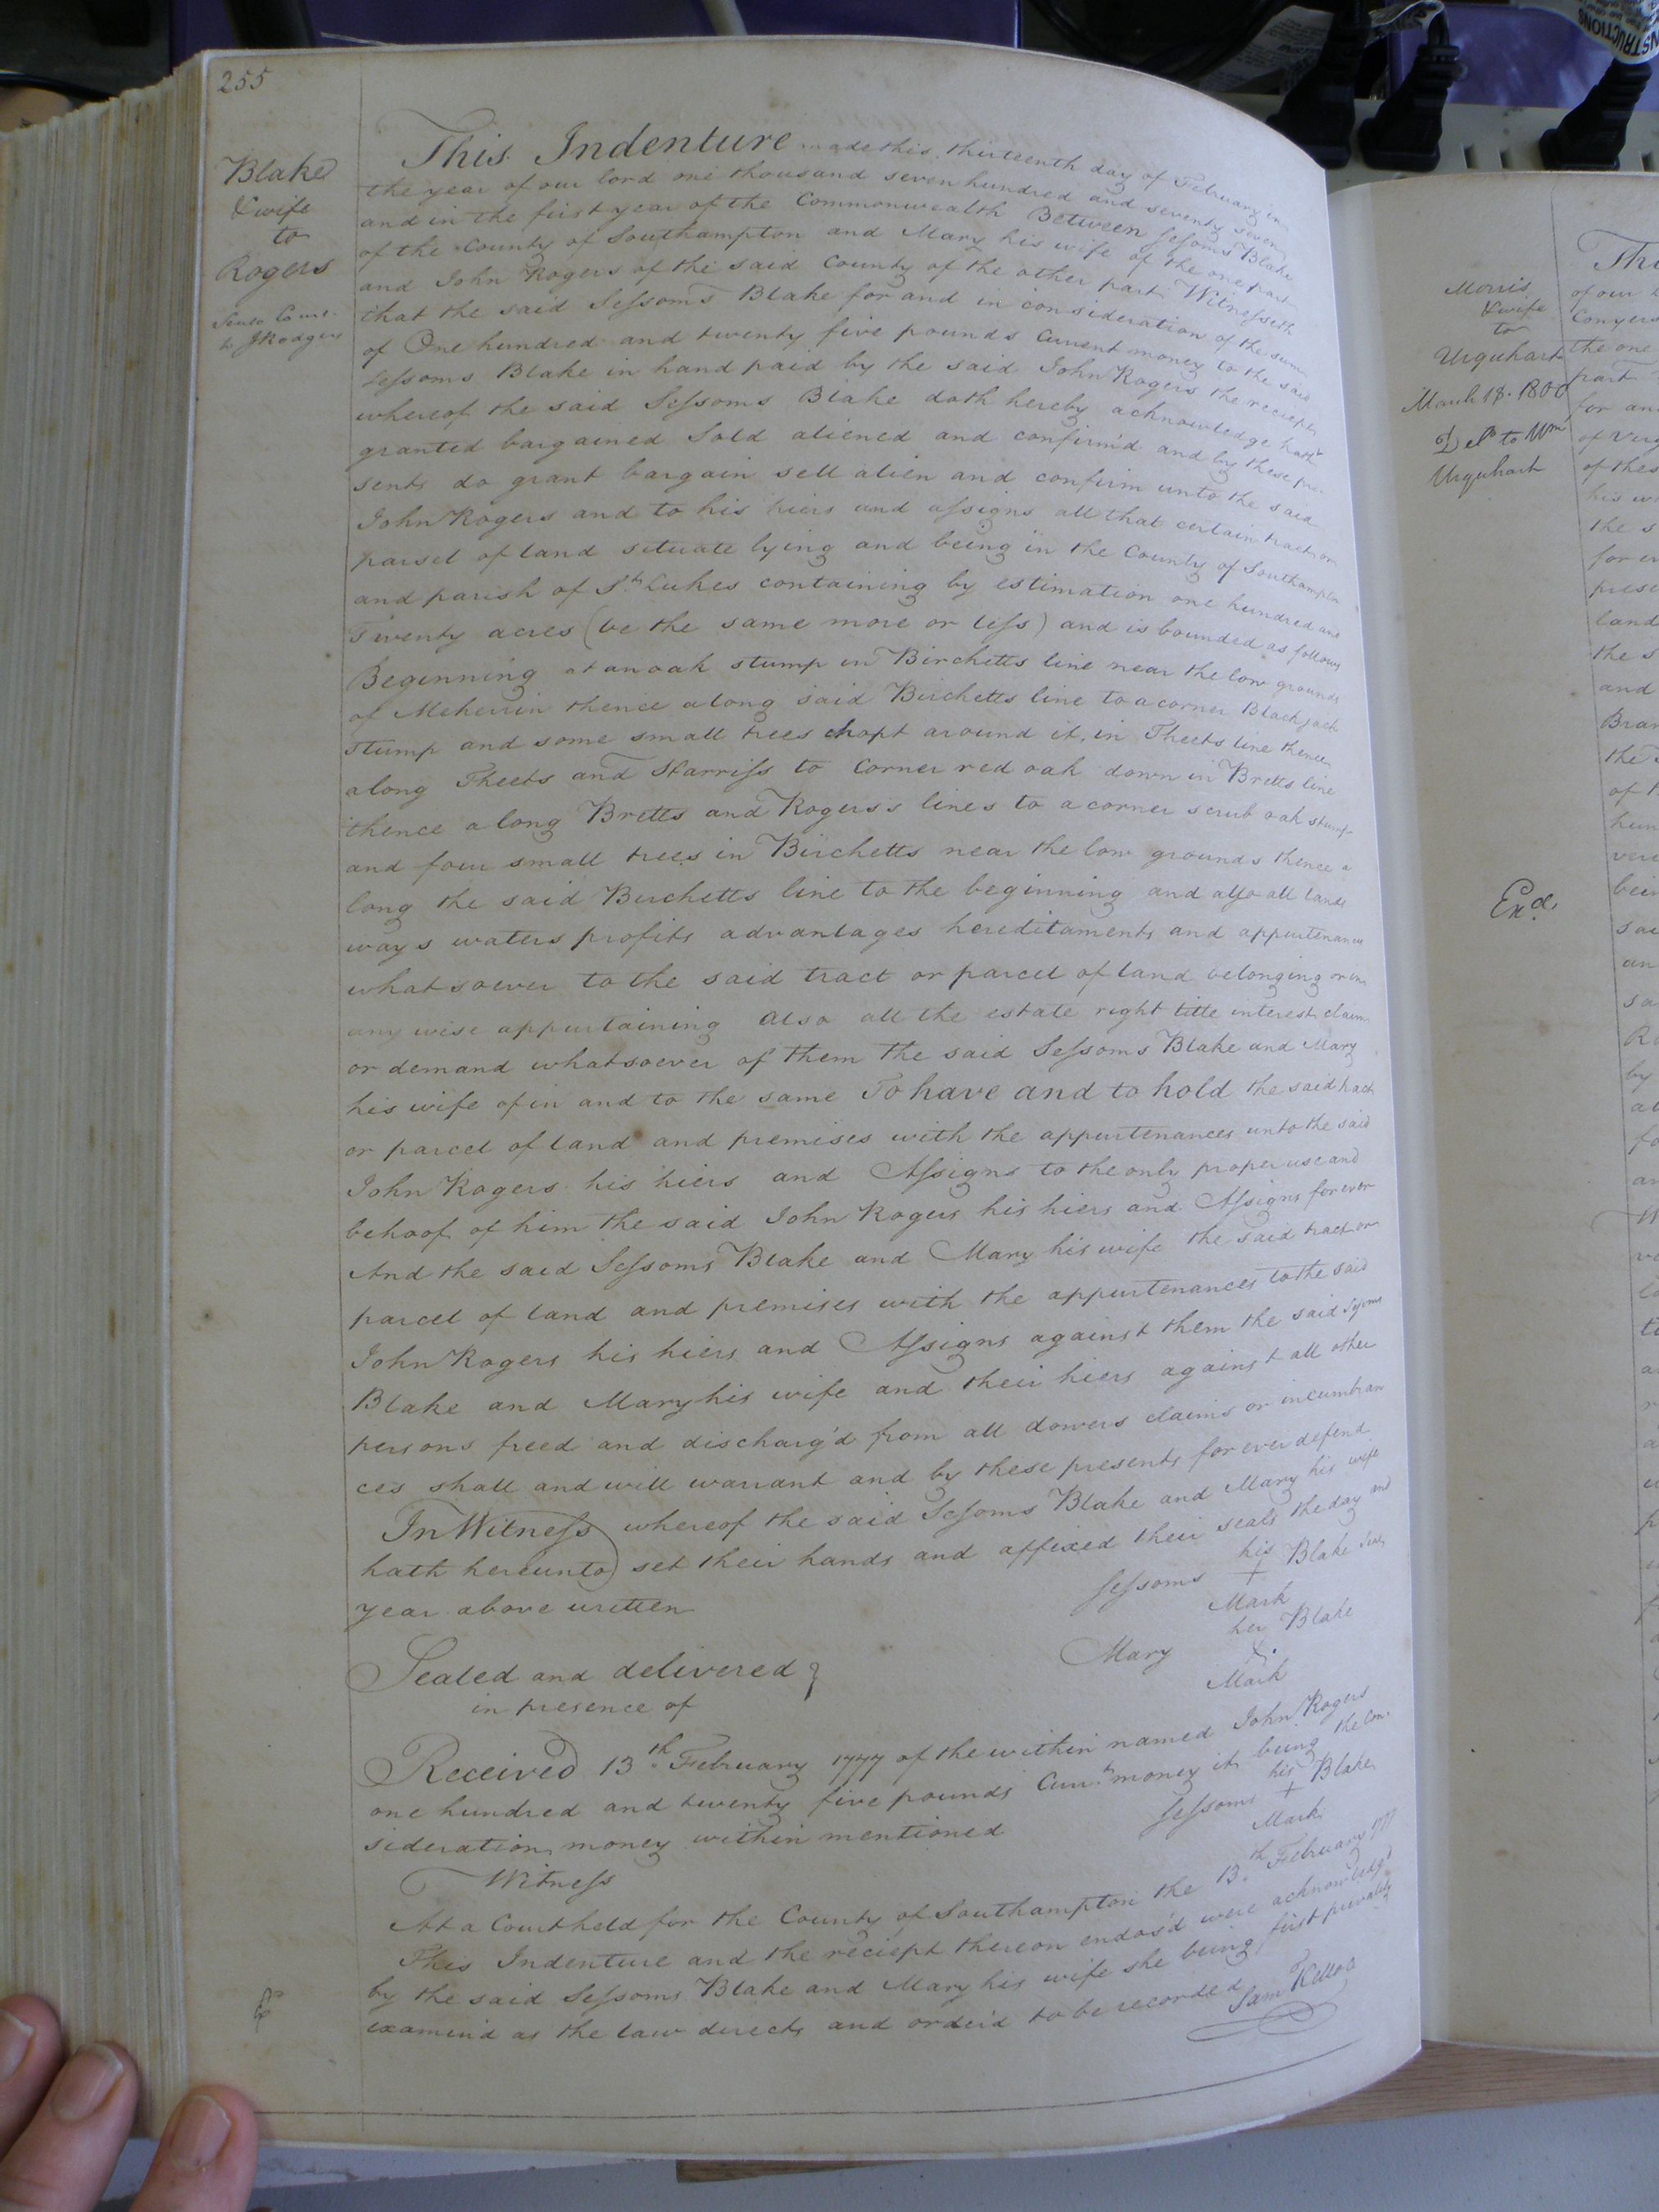 255
Blake
& wife
to
Rogers
to J Rodgers
This Indenture made this thirteenth day of February in
the year of our lord one thousand seven hundred and seventy seven
and in the first year of the Commonwealth Between Sessoms Blake
of the County of Southampton and Mary his wife of the one part
and John Rogers of the said County of the other part Witnesseth
that the said Sessoms Blake for and in consideration of the sum
of One hundred and twenty five pounds Current money to the said
Sessoms Blake in hand paid by the said John Rogers the reciept
whereof the said Sessoms Blake doth hereby acknowledge hath
granted bargained Sold aliened and confirm'd and by these pre
sents do grant bargain sell alien and confirm unto the said
John Rogers and to his hiers and assigns all that certain tract or
parsel of land situate lying and being in the County of Southampton
and parish of St. Lukes containing by estimation one hundred and
Twenty acres (be the same more or less) and is bounded as follows
Beginning at an oak stump in Birchetts line near the low grounds
of Meherrin thence along said Birchetts line to a corner Blackjack
stump and some small trees chopt around it, in Theets line thence
along Theets and Harriss to Corner red oak down in Bretts line
thence along Bretts and Rogers's lines to a corner scrub oak stump
and four small trees in Birchetts near the low grounds thence a
long the said Birchetts line to the beginning and also all lands
ways waters profits advantages hereditaments and appurtenances
whatsoever to the said tract or parcel of land belonging or in
any wise appurtaining also all the estate right title interest claim
or demand whatsoever of them the said Sessoms Blake and Mary
his wife of in and to the same To have and to hold the said tract
or parcel of land and premises with the appurtenances unto the said
John Rogers his hiers and Assigns to the only proper use and
behoof of him the said John Rogers his hiers and Assigns for ever
And the said Sessoms Blake and Mary his wife the said tract or
parcel of land and premises with the appurtenances to the said
John Rogers his hiers and Assigns against them the said Sessoms
Blake and Mary his wife and their hiers against all other
persons freed and discharg'd from all dowers claims or incumbran
ces shall and will warrant and by these presents for ever defend
In Witness whereof the said Sessoms Blake and Mary his wife
hath hereunto set their hands and affixed their seals the day and
year above written
his
Sessoms + Blake
Mark
her
Mary Blake
Mark
Sealed and delivered
in presence of
Received 13.th February 1777 of the within named John Rogers
one hundred and twenty five pounds Curr.t money it being the Con
sideration money within mentioned
his
Sessoms + Blake
Mark
Witness
At a Court held for the County of Southampton the 13.th February 1777
This Indenture and the reciept thereon endors'd were acknowledg'd
by the said Sessoms Blake and Mary his wife she being first privately
examin'd as the law directs and order'd to be recorded
Sam Kello
Morris
& wife
to
Urquhart
March 18. 1800
Deld to Wm
Urquhart
Exd.